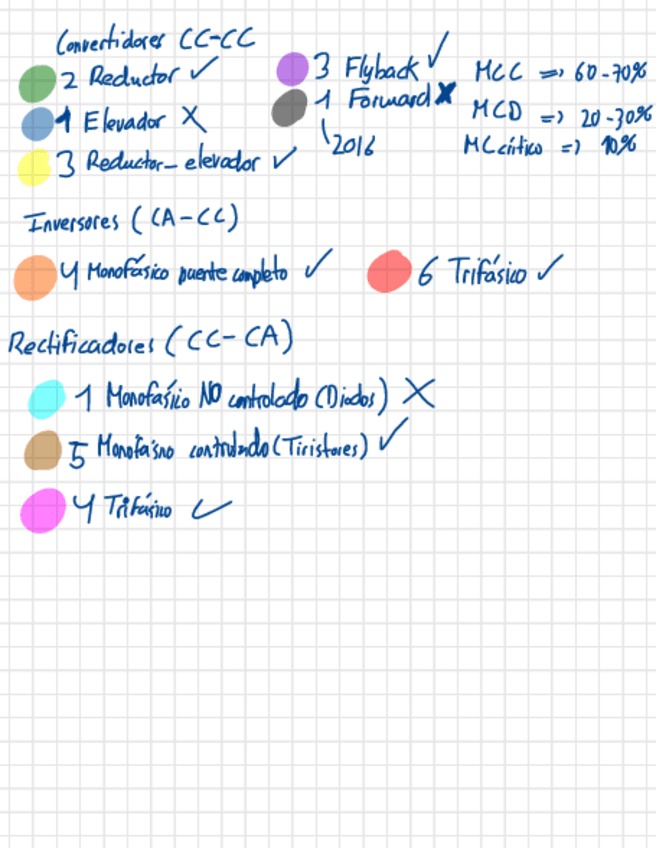 Convertidores CC-CC
2 Reductor ✓
1 Elevador X
3 Reductor-elevador ✓
3 Flyback ✓
1 Forward X
2016
MCC => 60-70%
MCD => 20-30%
MCcrítico => 10%
Inversores (CA-CC)
4 Monofásico puente completo ✓
6 Trifásico ✓
Rectificadores (CC-CA)
1 Monofásico NO controlado (Diodos) X
5 Monofásico controlado (Tiristores) ✓
4 Trifásico ✓